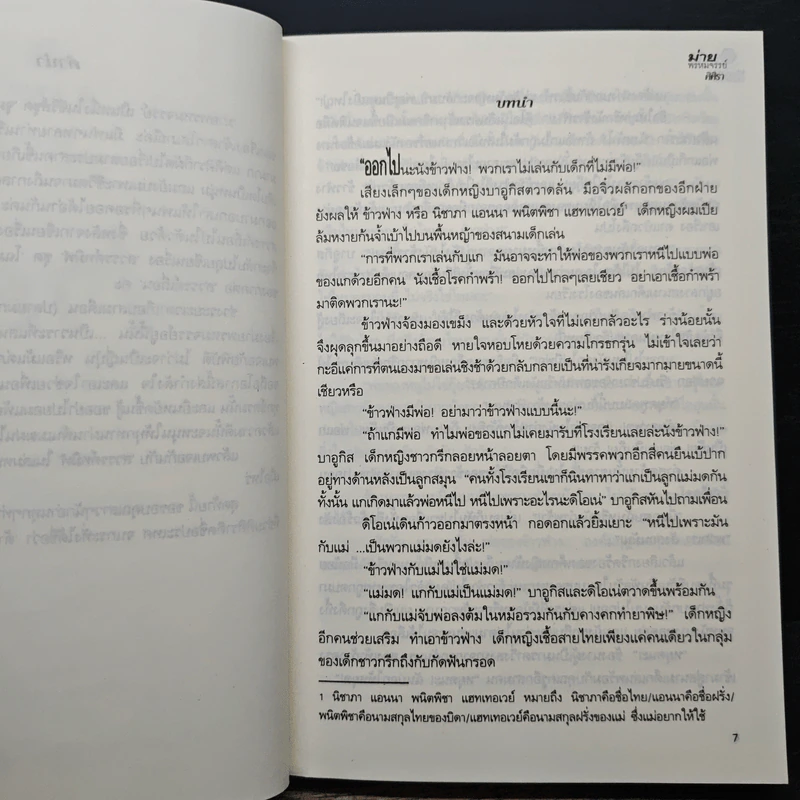 ม่าย
พรหมจรรย์
กิศิรา
บทนำ
"ออกไปนะนังข้าวฟ่าง! พวกเราไม่เล่นกับเด็กที่ไม่มีพ่อ!"
เสียงเล็กๆของเด็กหญิงบาอูกิสตวาดลั่น มือจิ๋วผลักอกของอีกฝ่าย
ยังผลให้ ข้าวฟ่าง หรือ นิชาภา แอนนา พนิตพิชา แฮทเทอเวย์¹ เด็กหญิงผมเปีย
ล้มหงายก้นจ้ำเบ้าไปบนพื้นหญ้าของสนามเด็กเล่น
"การที่พวกเราเล่นกับแก มันอาจจะทำให้พ่อของพวกเราหนีไปแบบพ่อ
ของแกด้วยอีกคน นังเชื้อโรคกำพร้า! ออกไปไกลๆเลยเชียว อย่าเอาเชื้อกำพร้า
มาติดพวกเรานะ!"
ข้าวฟ่างจ้องมองเขม็ง และด้วยหัวใจที่ไม่เคยกลัวอะไร ร่างน้อยนั้น
จึงผุดลุกขึ้นมาอย่างถือดี หายใจหอบโหยด้วยความโกรธกรุ่น ไม่เข้าใจเลยว่า
กะอีแค่การที่ตนเองมาขอเล่นชิงช้าด้วยกลับกลายเป็นที่น่ารังเกียจมากมายขนาดนี้
เชียวหรือ
"ข้าวฟ่างมีพ่อ! อย่ามาว่าข้าวฟ่างแบบนี้นะ!"
"ถ้าแกมีพ่อ ทำไมพ่อของแกไม่เคยมารับที่โรงเรียนเลยล่ะนังข้าวฟ่าง!"
บาอูกิส เด็กหญิงชาวกรีกลอยหน้าลอยตา โดยมีพรรคพวกอีกสี่คนยืนเบ้ปาก
อยู่ทางด้านหลังเป็นลูกสมุน "คนทั้งโรงเรียนเขาก็นินทาหาว่าแกเป็นลูกแม่มดกัน
ทั้งนั้น แกเกิดมาแล้วพ่อหนีไป หนีไปเพราะอะไรนะดิโอเน่" บาอูกิสหันไปถามเพื่อน
ดิโอเน่เดินก้าวออกมาตรงหน้า กอดอกแล้วยิ้มเยาะ "หนีไปเพราะมัน
กับแม่ ...เป็นพวกแม่มดยังไงล่ะ!"
"ข้าวฟ่างกับแม่ไม่ใช่แม่มด!"
"แม่มด! แกกับแม่เป็นแม่มด!" บาอูกิสและดิโอเน่ตวาดขึ้นพร้อมกัน
"แกกับแม่จับพ่อลงต้มในหม้อรวมกันกับคางคกทำยาพิษ!" เด็กหญิง
อีกคนช่วยเสริม ทำเอาข้าวฟ่าง เด็กหญิงเชื้อสายไทยเพียงแค่คนเดียวในกลุ่ม
ของเด็กชาวกรีกถึงกับกัดฟันกรอด
1 นิชาภา แอนนา พนิตพิชา แฮทเทอเวย์ หมายถึง นิชาภาคือชื่อไทย/แอนนาคือชื่อฝรั่ง/
พนิตพิชาคือนามสกุลไทยของบิดา/แฮทเทอเวย์คือนามสกุลฝรั่งของแม่ ซึ่งแม่อยากให้ใช้
7